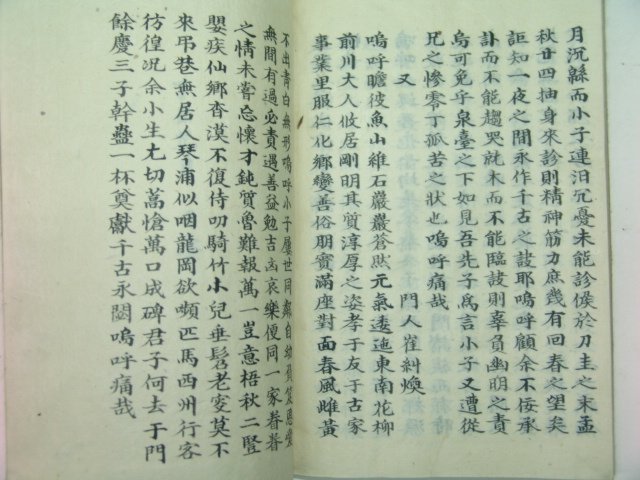 月沉縣而小子連汨冗憂未能診候於刀圭之末孟
秋廿四抽身來診則精神筋力庶幾有回春之望矣
詎知一夜之間永作千古之訣耶嗚呼顧余不佞承
訃而不能趨哭就木而不能臨訣則辜負幽明之責
烏可免乎泉臺之下如見吾先子爲言小子又遭從
兄之慘零丁孤苦之狀也嗚呼痛哉
又 門人崔糾煥
嗚呼瞻彼魚山維石巖巖蒼然元氣逶迤東南花柳
前川大人攸居剛明其質淳厚之姿孝于友于古家
事業里服仁化鄉變善俗朋賓滿座對面春風雌黃
不出青白無形嗚呼小子屢世同鄰自幼負笈恩愛
無間有過必責遇善益勉吉凶哀樂便同一家眷眷
之情未嘗忘懷才鈍質魯難報萬一豈意梧秋二豎
嬰疾仙鄉杳漠不復侍叨騎竹小兒垂髫老叟莫不
來弔巷無居人琴浦似咽龍岡欲嚬匹馬西州行客
彷徨况余小生尤切萬愴萬口成碑君子何去于門
餘慶三子幹蠱一杯奠獻千古永閟嗚呼痛哉